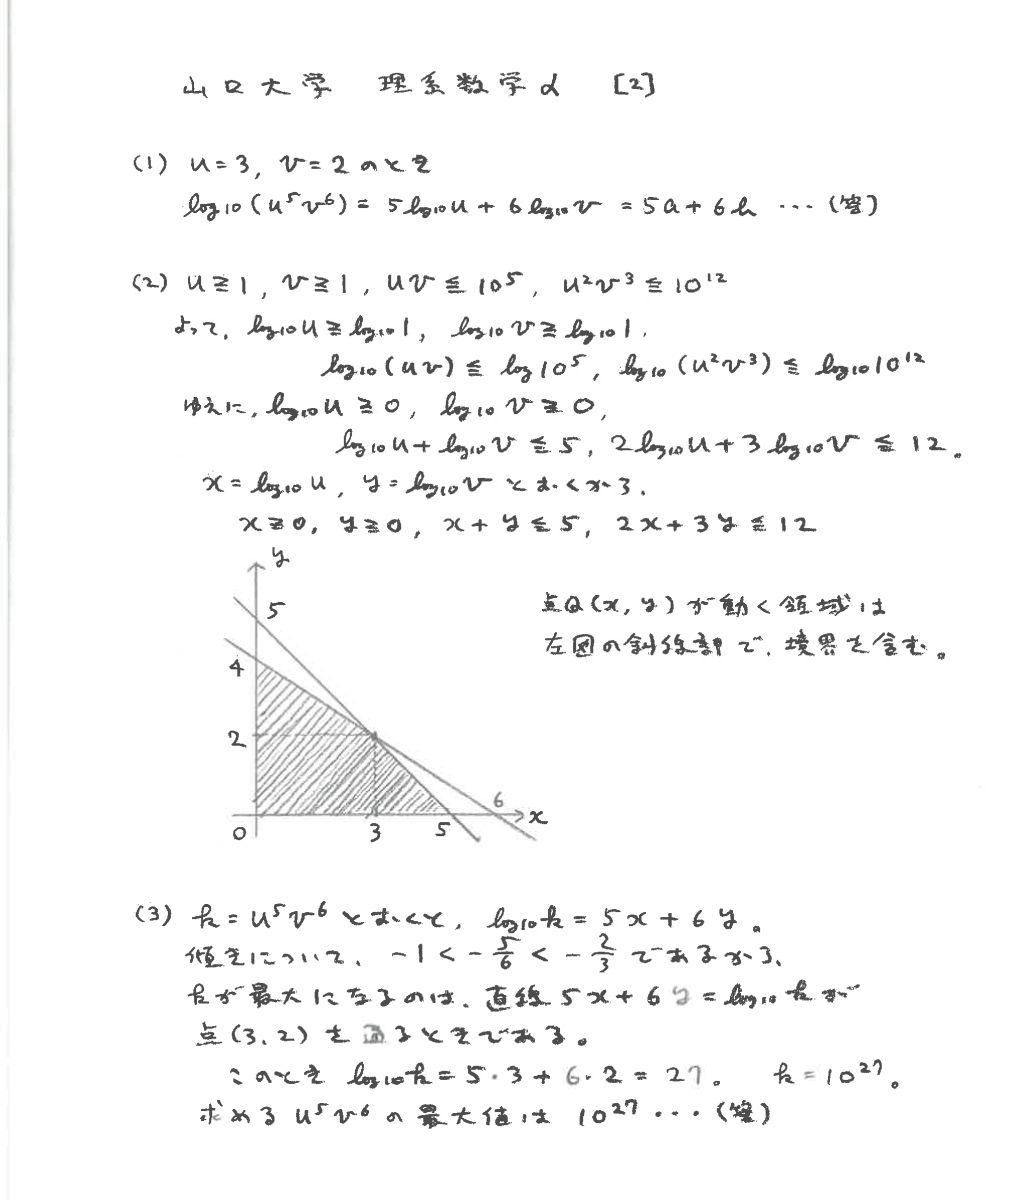 山口大学 理系数学α [2]
(1) u=3, v=2 のとき
log₁₀(u⁵v⁶)= 5log₁₀u + 6log₁₀v = 5a+6b ⋯(答)
(2) u≧1, v≧1, uv≦10⁵, u²v³≦10¹²
よって, log₁₀u≧log₁₀1, log₁₀v≧log₁₀1,
log₁₀(uv)≦log10⁵, log₁₀(u²v³)≦log₁₀10¹²
ゆえに, log₁₀u≧0, log₁₀v≧0,
log₁₀u+log₁₀v≦5, 2log₁₀u+3log₁₀v≦12。
x=log₁₀u, y=log₁₀v とおくから,
x≧0, y≧0, x+y≦5, 2x+3y≦12
y
5
4
2
0
3
5
6
x
点Q(x, y)が動く領域は
左図の斜線部で、境界を含む。
(3) k=u⁵v⁶とおくと, log₁₀k=5x+6y。
傾きについて、-1<-5/6<-2/3であるから、
kが最大になるのは、直線5x+6y=log₁₀kが
点(3, 2)を通るときである。
このとき log₁₀k=5・3+6・2=27。 k=10²⁷。
求めるu⁵v⁶の最大値は 10²⁷⋯(答)